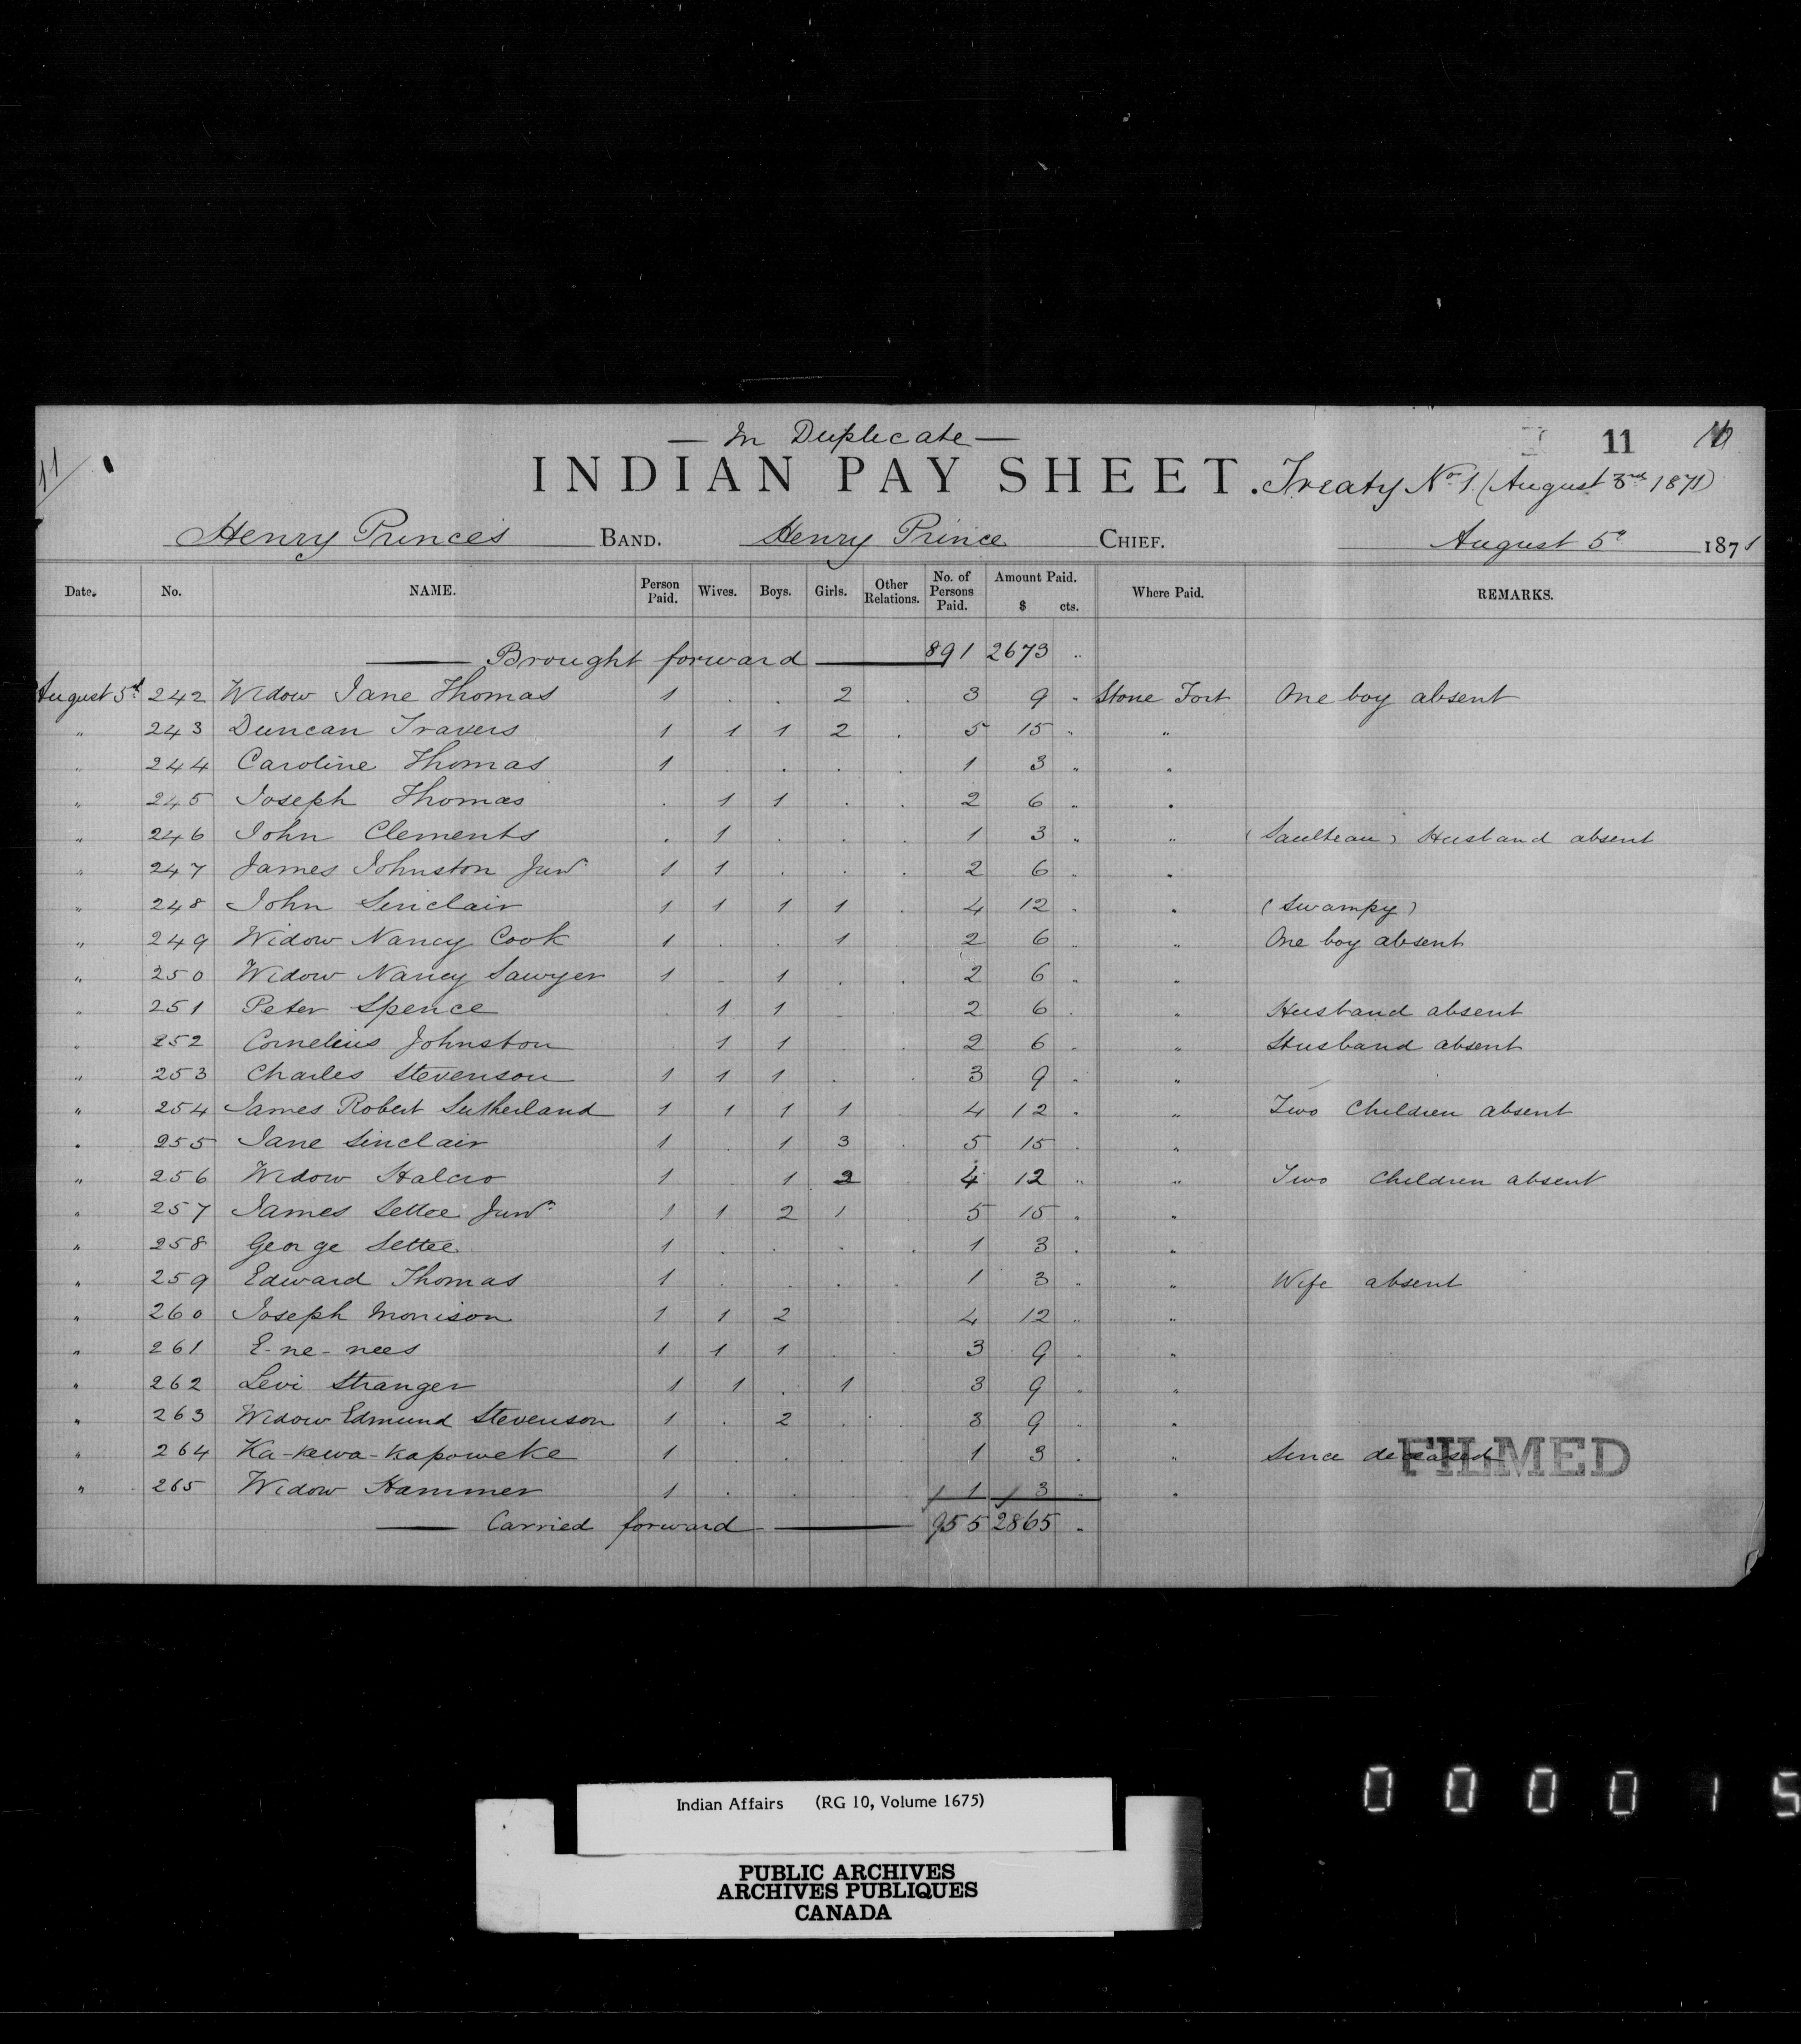 — In Duplicate —
11
11
INDIAN PAY SHEET. Treaty No. 1 (August 3rd 1871)
Henry Prince's BAND. Henry Prince CHIEF. August 5th 1871
Date. No. NAME. Person Paid. Wives. Boys. Girls. Other Relations. No. of Persons Paid. Amount Paid. $ cts. Where Paid. REMARKS.
Brought forward 891 2673 "
August 5th 242 Widow Jane Thomas 1 . . 2 . 3 9 " Stone Fort One boy absent
" 243 Duncan Travers 1 1 1 2 . 5 15 " "
" 244 Caroline Thomas 1 . . . . 1 3 " "
" 245 Joseph Thomas . 1 1 . . 2 6 " "
" 246 John Clements . 1 . . . 1 3 " " (Saulteau) Husband absent
" 247 James Johnston Junr. 1 1 . . . 2 6 " "
" 248 John Sinclair 1 1 1 1 . 4 12 " " (Swampy)
" 249 Widow Nancy Cook 1 . . 1 2 6 " " One boy absent
" 250 Widow Nancy Sawyer 1 . 1 . . 2 6 " "
" 251 Peter Spence . 1 1 . . 2 6 " " Husband absent
" 252 Cornelius Johnston . 1 1 . . 2 6 " " Husband absent
" 253 Charles Stevenson 1 1 1 . . 3 9 " "
" 254 James Robert Sutherland 1 1 1 1 . 4 12 " " Two Children absent
" 255 Jane Sinclair 1 . 1 3 . 5 15 " "
" 256 Widow Halcro 1 . 1 2 . 4 12 " " Two Children absent
" 257 James Settee Junr. 1 1 2 1 . 5 15 " "
" 258 George Settee 1 . . . . 1 3 " "
" 259 Edward Thomas 1 . . . . 1 3 " " Wife absent
" 260 Joseph Morrison 1 1 2 4 12 " "
" 261 E-ne-nees 1 1 1 . . 3 9 " "
" 262 Levi Stranger 1 1 . 1 3 9 " "
" 263 Widow Edmund Stevenson 1 . 2 . . 3 9 " "
" 264 Ka-kewa-kapoweke 1 . . . . 1 3 " " Since deceased
FILMED
" 265 Widow Hammer 1 . . . . 1 3 " "
Carried forward 955 2865 "
Indian Affairs (RG 10, Volume 1675)
PUBLIC ARCHIVES
ARCHIVES PUBLIQUES
CANADA
0 0 0 0 1 5